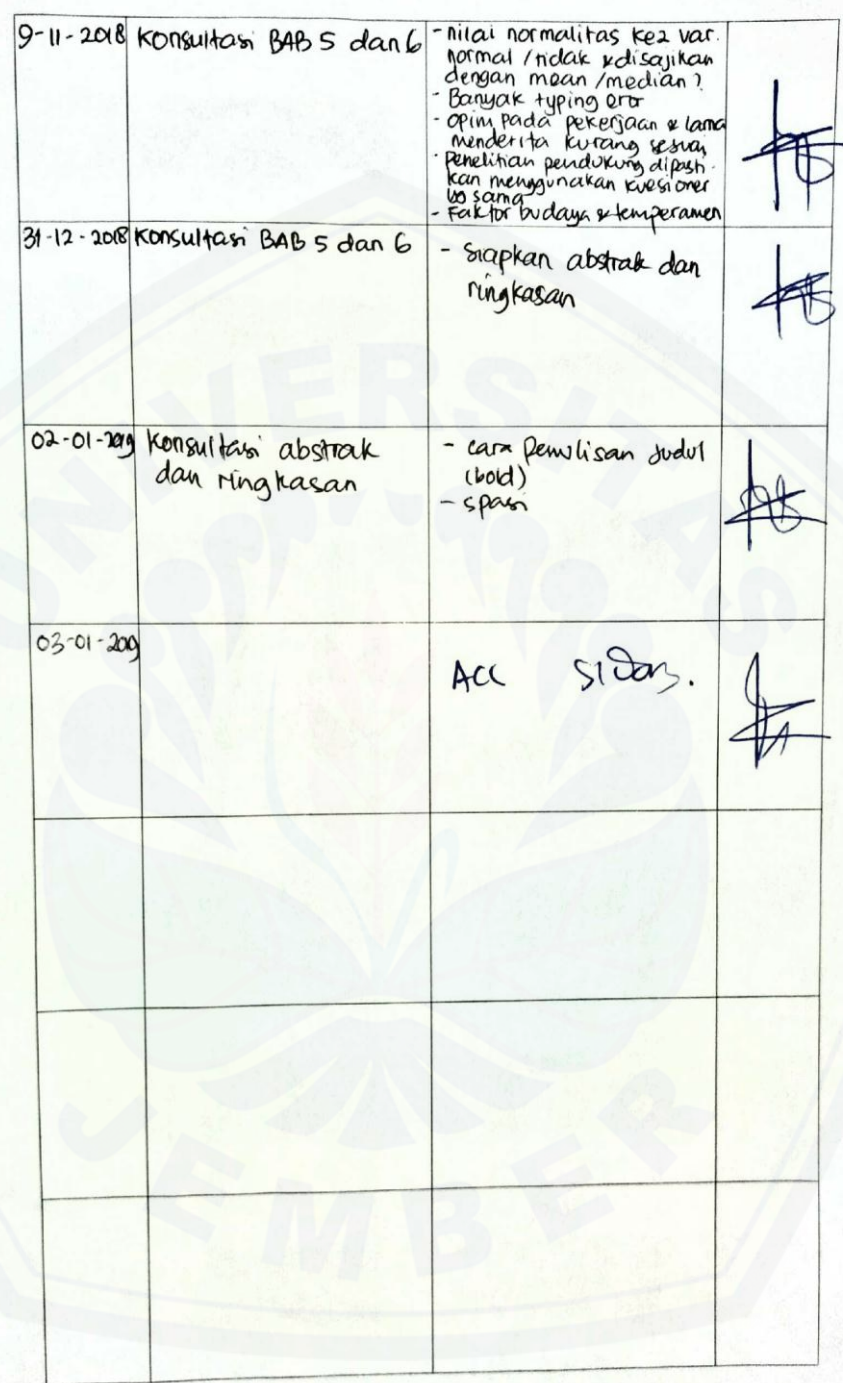 9-11-2018
Konsultasi BAB 5 dan 6
- nilai normalitas ke2 var.
normal / tidak & disajikan
dengan mean / median?
- Banyak typing eror
- opini pada pekerjaan & lama
menderita kurang sesuai
- penelitian pendukung dipasti
kan menggunakan kuesioner
yg sama
- Faktor budaya & temperamen
31-12-2018
Konsultasi BAB 5 dan 6
- siapkan abstrak dan
ringkasan
02-01-2019
Konsultasi abstrak
dan ringkasan
- cara penulisan judul
(bold)
- spasi
03-01-2019
ACC sidang.
UNIVERSITAS
JEMBER